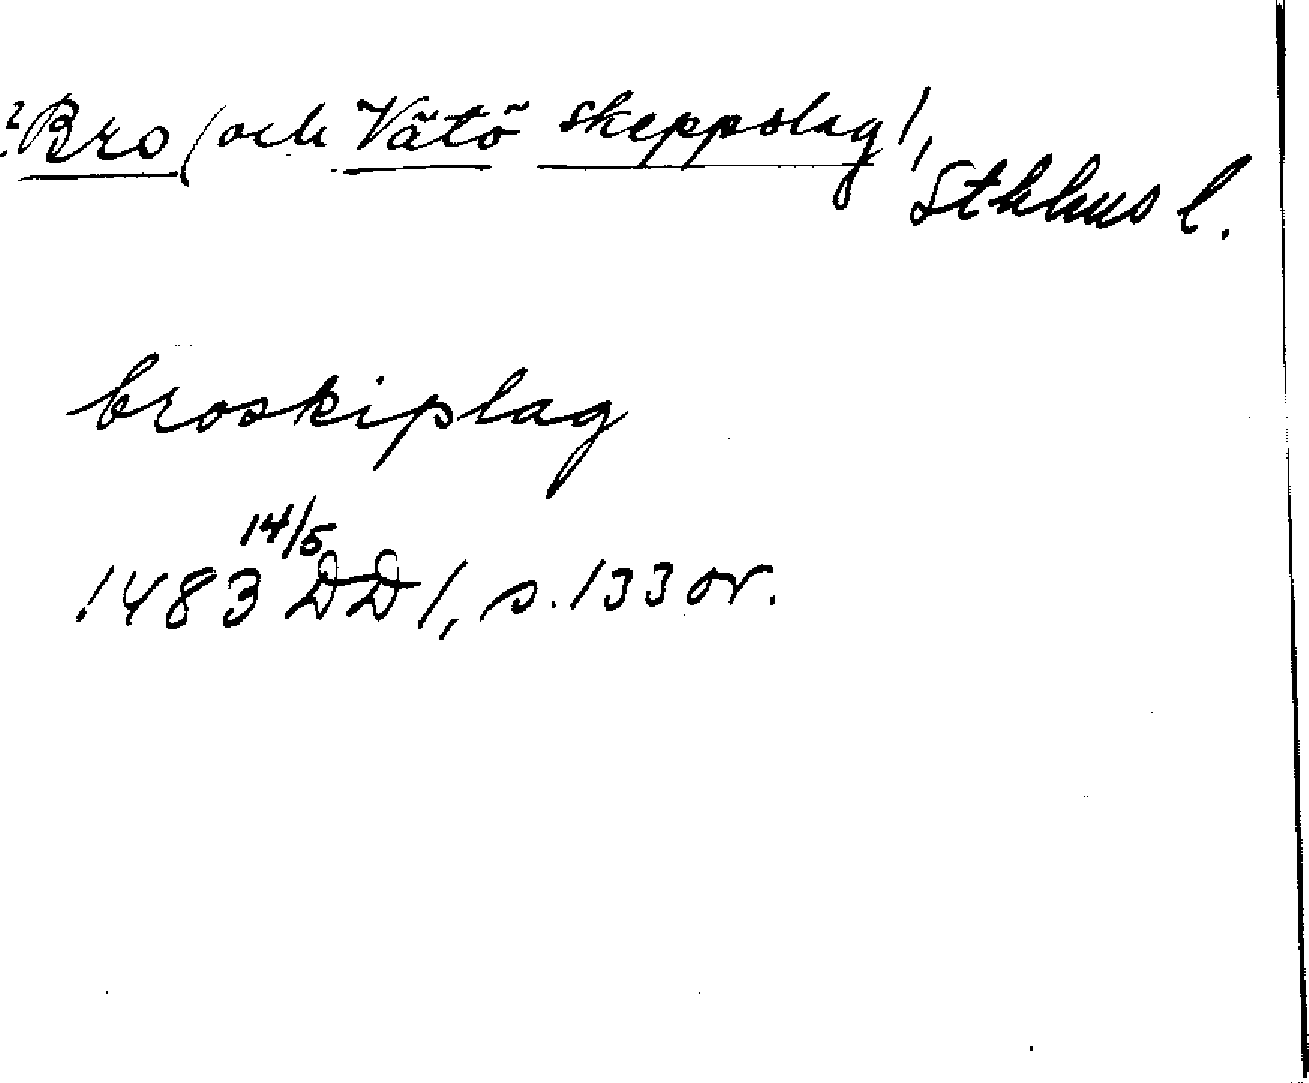 ?Bro (och Vätö skeppslag),
Sthlms l.
broskiplag
1483 14/5 DD 1, s. 133 or.